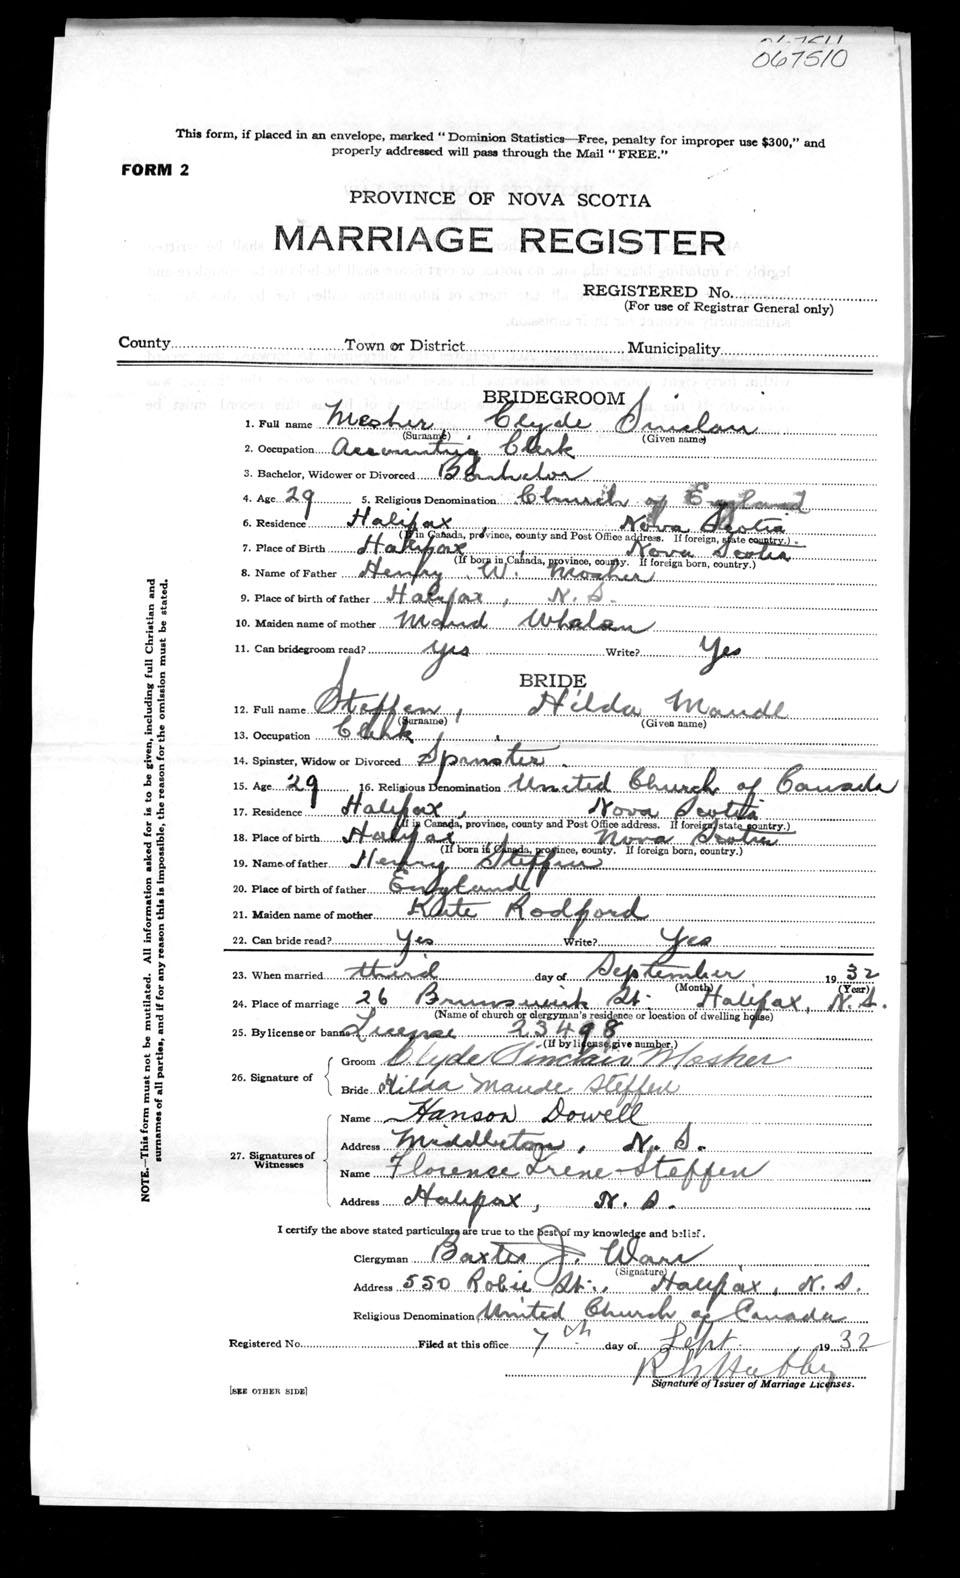 067510
This form, if placed in an envelope, marked "Dominion Statistics—Free, penalty for improper use $300," and
properly addressed will pass through the Mail "FREE."
FORM 2
PROVINCE OF NOVA SCOTIA
MARRIAGE REGISTER
REGISTERED No.
(For use of Registrar General only)
County Town or District Municipality
BRIDEGROOM
1. Full name Mosher Clyde Sinclair
(Surname) (Given name)
2. Occupation Accounting Clerk
3. Bachelor, Widower or Divorced Bachelor
4. Age 29 5. Religious Denomination Church of England
6. Residence Halifax, Nova Scotia
(If in Canada, province, county and Post Office address. If foreign, state country.)
7. Place of Birth Halifax, Nova Scotia
(If born in Canada, province, county. If foreign born, country.)
8. Name of Father Henry W. Mosher
9. Place of birth of father Halifax, N.S.
10. Maiden name of mother Maud Whalen
11. Can bridegroom read? Yes Write? Yes
BRIDE
12. Full name Steffen, Hilda Maude
(Surname) (Given name)
13. Occupation Clerk
14. Spinster, Widow or Divorced Spinster.
15. Age 29 16. Religious Denomination United Church of Canada
17. Residence Halifax, Nova Scotia
(If in Canada, province, county and Post Office address. If foreign state country.)
18. Place of birth Halifax Nova Scotia
(If born in Canada, province, county. If foreign born, country.)
19. Name of father Henry Steffen
20. Place of birth of father England
21. Maiden name of mother Kate Rodford
22. Can bride read? Yes Write? Yes
23. When married third day of September 1932
(Month) (Year)
24. Place of marriage 26 Brunswick St. Halifax, N.S.
(Name of church or clergyman's residence or location of dwelling house)
25. By license or banns License 23498
(If by license, give number.)
26. Signature of Groom Clyde Sinclair Mosher
Bride Hilda Maude Steffen
27. Signatures of Witnesses Name Hanson Dowell
Address Middleton, N.S.
Name Florence Irene Steffen
Address Halifax, N.S.
I certify the above stated particulars are true to the best of my knowledge and belief.
Clergyman Baxter J. Ware
(Signature)
Address 550 Robie St., Halifax, N.S.
Religious Denomination United Church of Canada
Registered No. Filed at this office 7th day of Sept 1932
Signature of Issuer of Marriage Licenses.
[SEE OTHER SIDE]
NOTE.—This form must not be mutilated. All information asked for is to be given, including full Christian and
surnames of all parties, and if for any reason this is impossible, the reason for the omission must be stated.